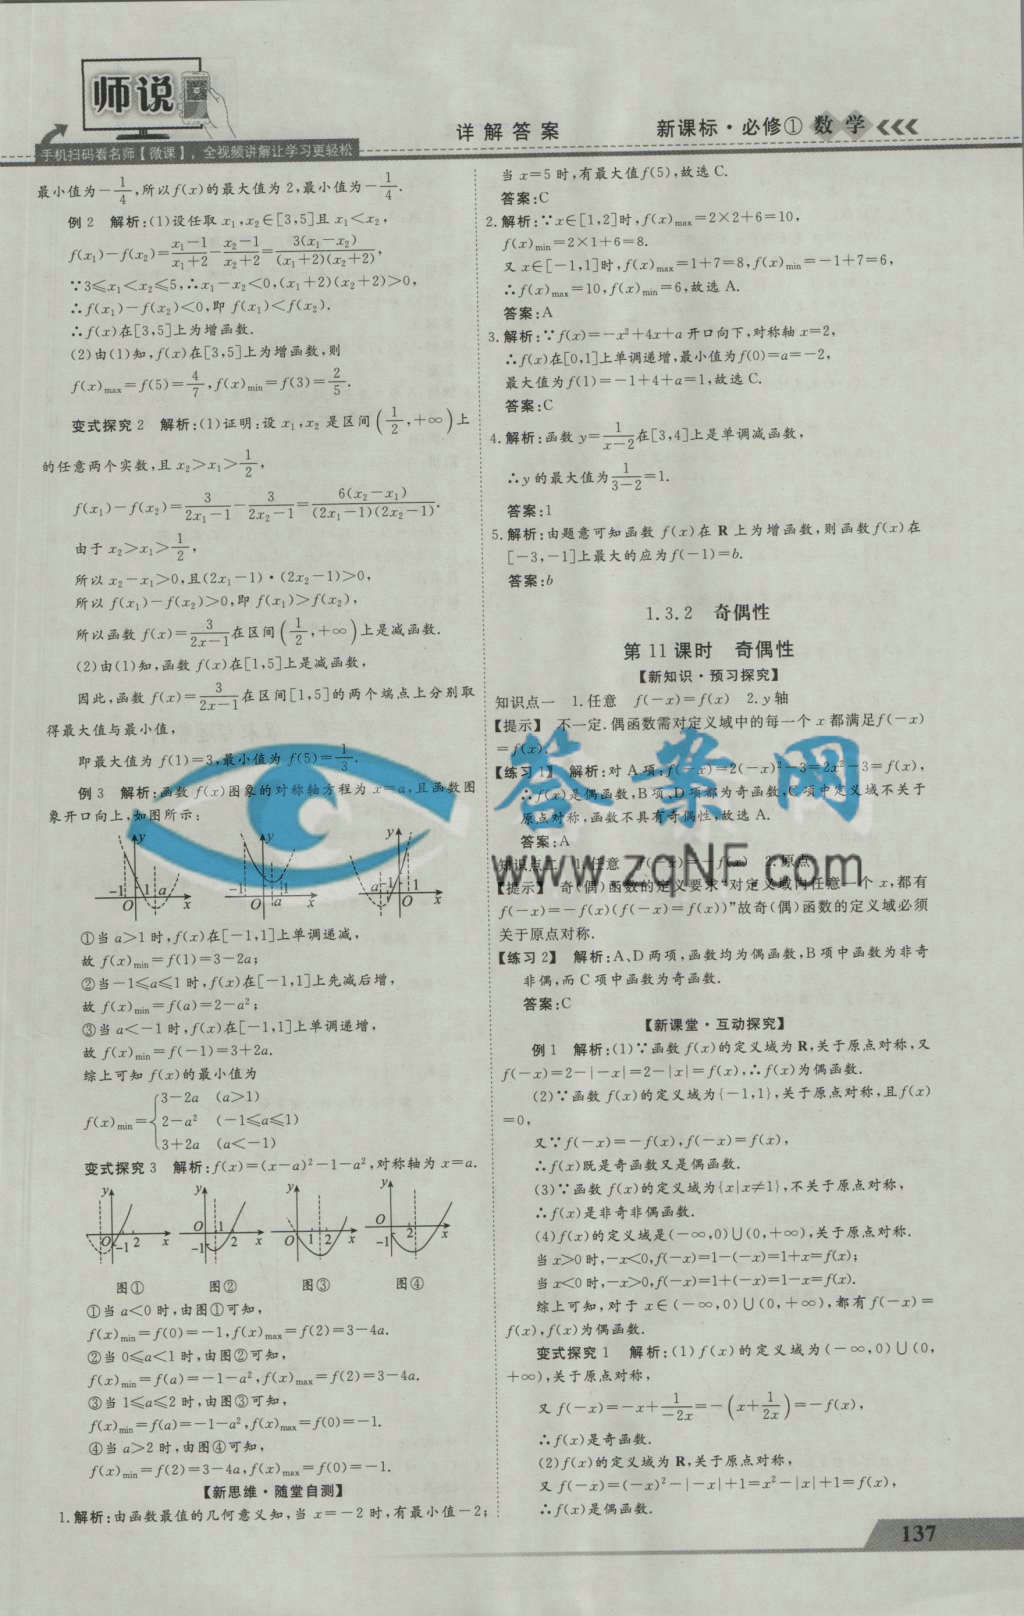 师说
手机扫码看名师【微课】，全视频讲解让学习更轻松
详解答案
新课标·必修① 数学
最小值为-1/4,所以f(x)的最大值为2,最小值为-1/4.
例2 解析:(1)设任取x₁,x₂∈[3,5]且x₁<x₂,
f(x₁)-f(x₂)=(x₁-1)/(x₁+2)-(x₂-1)/(x₂+2)=3(x₁-x₂)/((x₁+2)(x₂+2)),
∵3≤x₁<x₂≤5,∴x₁-x₂<0,(x₁+2)(x₂+2)>0,
∴f(x₁)-f(x₂)<0,即f(x₁)<f(x₂).
∴f(x)在[3,5]上为增函数.
(2)由(1)知,f(x)在[3,5]上为增函数,则
f(x)max=f(5)=4/7,f(x)min=f(3)=2/5.
变式探究2 解析:(1)证明:设x₁,x₂是区间(1/2,+∞)上
的任意两个实数,且x₂>x₁>1/2,
f(x₁)-f(x₂)=3/(2x₁-1)-3/(2x₂-1)=6(x₂-x₁)/((2x₁-1)(2x₂-1)).
由于x₂>x₁>1/2,
所以x₂-x₁>0,且(2x₁-1)·(2x₂-1)>0,
所以f(x₁)-f(x₂)>0,即f(x₁)>f(x₂),
所以函数f(x)=3/(2x-1)在区间(1/2,+∞)上是减函数.
(2)由(1)知,函数f(x)在[1,5]上是减函数,
因此,函数f(x)=3/(2x-1)在区间[1,5]的两个端点上分别取
得最大值与最小值,
即最大值为f(1)=3,最小值为f(5)=1/3.
例3 解析:函数f(x)图象的对称轴方程为x=a,且函数图
象开口向上,如图所示:
y y y
-1 1 a x -1 a 1 x a -1 1 x
O O O
①当a>1时,f(x)在[-1,1]上单调递减,
故f(x)min=f(1)=3-2a;
②当-1≤a≤1时,f(x)在[-1,1]上先减后增,
故f(x)min=f(a)=2-a²;
③当a<-1时,f(x)在[-1,1]上单调递增,
故f(x)min=f(-1)=3+2a.
综上可知f(x)的最小值为
f(x)min={3-2a (a>1)
2-a² (-1≤a≤1)
3+2a (a<-1)
变式探究3 解析:f(x)=(x-a)²-1-a²,对称轴为x=a.
y y y y
O -1 2 x O 1 -1 2 x O 1 2 x O -1 2 x
图① 图② 图③ 图④
①当a<0时,由图①可知,
f(x)min=f(0)=-1,f(x)max=f(2)=3-4a.
②当0≤a<1时,由图②可知,
f(x)min=f(a)=-1-a²,f(x)max=f(2)=3-4a.
③当1≤a≤2时,由图③可知,
f(x)min=f(a)=-1-a²,f(x)max=f(0)=-1.
④当a>2时,由图④可知,
f(x)min=f(2)=3-4a,f(x)max=f(0)=-1.
【新思维·随堂自测】
1.解析:由函数最值的几何意义知,当x=-2时,有最小值-2;
当x=5时,有最大值f(5),故选C.
答案:C
2.解析:∵x∈[1,2]时,f(x)max=2×2+6=10,
f(x)min=2×1+6=8.
又x∈[-1,1]时,f(x)max=1+7=8,f(x)min=-1+7=6,
∴f(x)max=10,f(x)min=6,故选A.
答案:A
3.解析:∵f(x)=-x²+4x+a开口向下,对称轴x=2,
∴f(x)在[0,1]上单调递增,最小值为f(0)=a=-2,
最大值为f(1)=-1+4+a=1,故选C.
答案:C
4.解析:函数y=1/(x-2)在[3,4]上是单调减函数,
∴y的最大值为1/(3-2)=1.
答案:1
5.解析:由题意可知函数f(x)在R上为增函数,则函数f(x)在
[-3,-1]上最大的应为f(-1)=b.
答案:b
1.3.2 奇偶性
第11课时 奇偶性
【新知识·预习探究】
知识点一 1.任意 f(-x)=f(x) 2.y轴
【提示】 不一定.偶函数需对定义域中的每一个x都满足f(-x)
=f(x).
【练习1】 解析:对A项:f(-x)=2(-x)²-3=2x²-3=f(x),
∴f(x)是偶函数,B项、D项都为奇函数,C项中定义域不关于
原点对称,函数不具有奇偶性,故选A.
答案:A
知识点二 1.任意 f(-x)=-f(x) 2.原点
【提示】 奇(偶)函数的定义要求“对定义域内任意一个x,都有
f(-x)=-f(x)(f(-x)=f(x))”故奇(偶)函数的定义域必须
关于原点对称.
【练习2】 解析:A、D两项,函数均为偶函数,B项中函数为非奇
非偶,而C项中函数为奇函数.
答案:C
【新课堂·互动探究】
例1 解析:(1)∵函数f(x)的定义域为R,关于原点对称,又
f(-x)=2-|-x|=2-|x|=f(x),∴f(x)为偶函数.
(2)∵函数f(x)的定义域为{-1,1},关于原点对称,且f(x)
=0,
又∵f(-x)=-f(x),f(-x)=f(x),
∴f(x)既是奇函数又是偶函数.
(3)∵函数f(x)的定义域为{x|x≠1},不关于原点对称,
∴f(x)是非奇非偶函数.
(4)f(x)的定义域是(-∞,0)∪(0,+∞),关于原点对称.
当x>0时,-x<0,f(-x)=1-(-x)=1+x=f(x);
当x<0时,-x>0,f(-x)=1+(-x)=1-x=f(x).
综上可知,对于x∈(-∞,0)∪(0,+∞),都有f(-x)=
f(x),f(x)为偶函数.
变式探究1 解析:(1)f(x)的定义域为(-∞,0)∪(0,
+∞),关于原点对称,
又f(-x)=-x+1/(-2x)=-(x+1/(2x))=-f(x),
∴f(x)是奇函数.
(2)f(x)的定义域为R,关于原点对称,
又f(-x)=(-x)²-|-x|+1=x²-|x|+1=f(x),
∴f(x)是偶函数.
答案网
www.zqNF.com
137